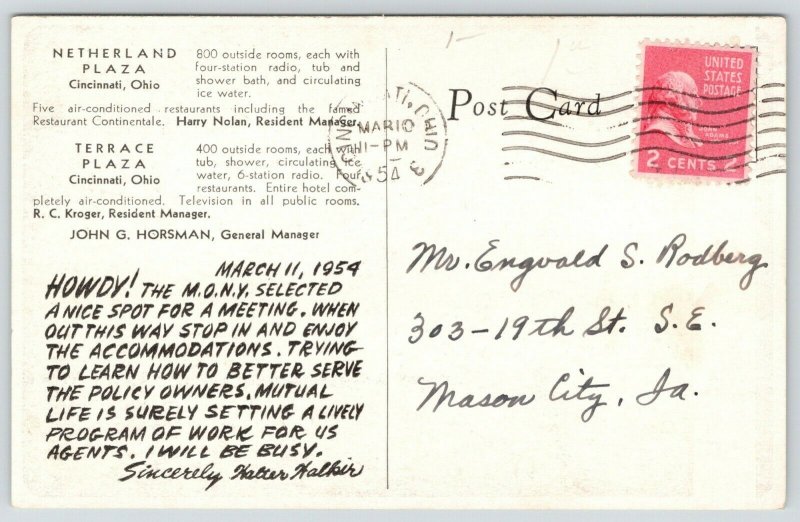 NETHERLAND
PLAZA
Cincinnati, Ohio
800 outside rooms, each with
four-station radio, tub and
shower bath, and circulating
ice water.
Five air-conditioned restaurants including the famed
Restaurant Continentale. Harry Nolan, Resident Manager.
TERRACE
PLAZA
Cincinnati, Ohio
400 outside rooms, each with
tub, shower, circulating ice
water, 6-station radio. Four
restaurants. Entire hotel com-
pletely air-conditioned. Television in all public rooms.
R. C. Kroger, Resident Manager.
JOHN G. HORSMAN, General Manager
MARCH 11, 1954
HOWDY! THE M.O.N.Y. SELECTED
A NICE SPOT FOR A MEETING. WHEN
OUT THIS WAY STOP IN AND ENJOY
THE ACCOMMODATIONS. TRYING
TO LEARN HOW TO BETTER SERVE
THE POLICY OWNERS. MUTUAL
LIFE IS SURELY SETTING A LIVELY
PROGRAM OF WORK FOR US
AGENTS. I WILL BE BUSY.
Sincerely
Post Card
CINCINNATI, OHIO
MAR 10
11-PM
1954
UNITED
STATES
POSTAGE
JOHN
ADAMS
2 CENTS 2
Mr. Engvald S. Rodberg
303-19th St. S.E.
Mason City, Ia.